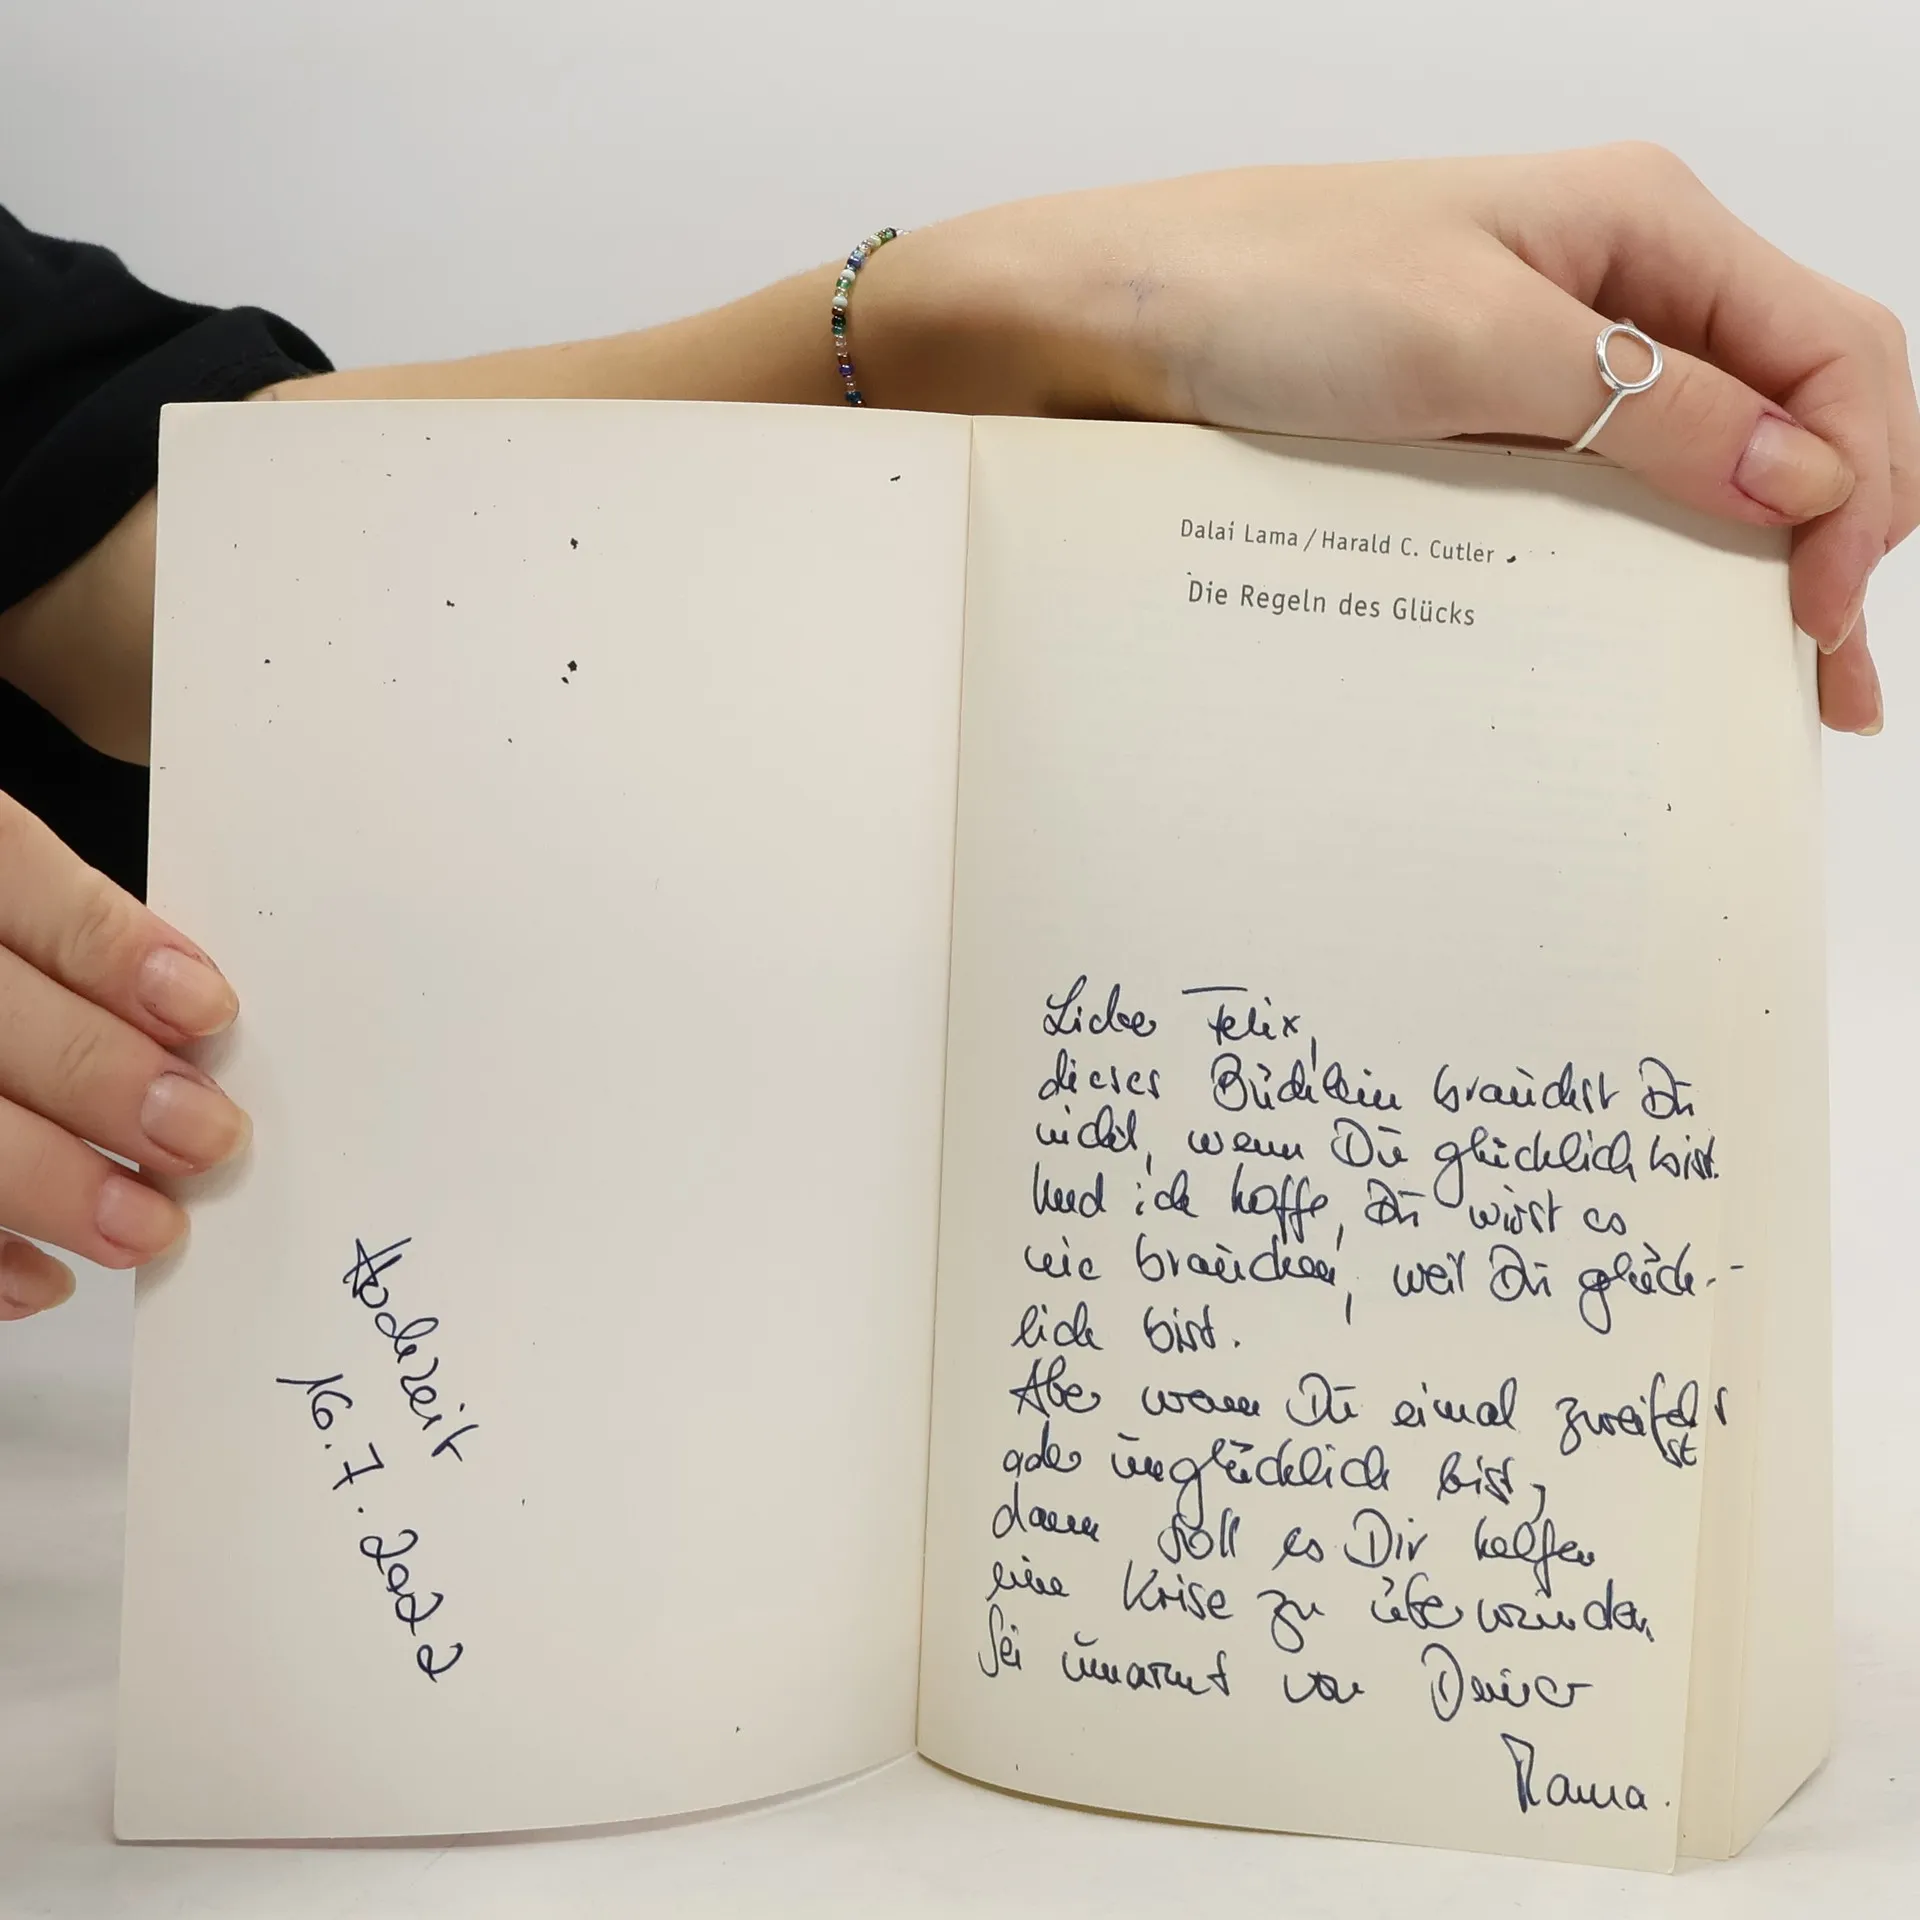 Hochzeit
16.7.2022
Dalai Lama/Harald C. Cutler
Die Regeln des Glücks
Lieber Felix,
dieses Büchlein brauchst Du
nicht, wenn Du glücklich bist.
Und ich hoffe, Du wirst es
nie brauchen, weil Du glück-
lich bist.
Aber wenn Du einmal zweifelst
oder unglücklich bist,
dann soll es Dir helfen
eine Krise zu überwinden.
Sei umarmt von Deiner
Mama.